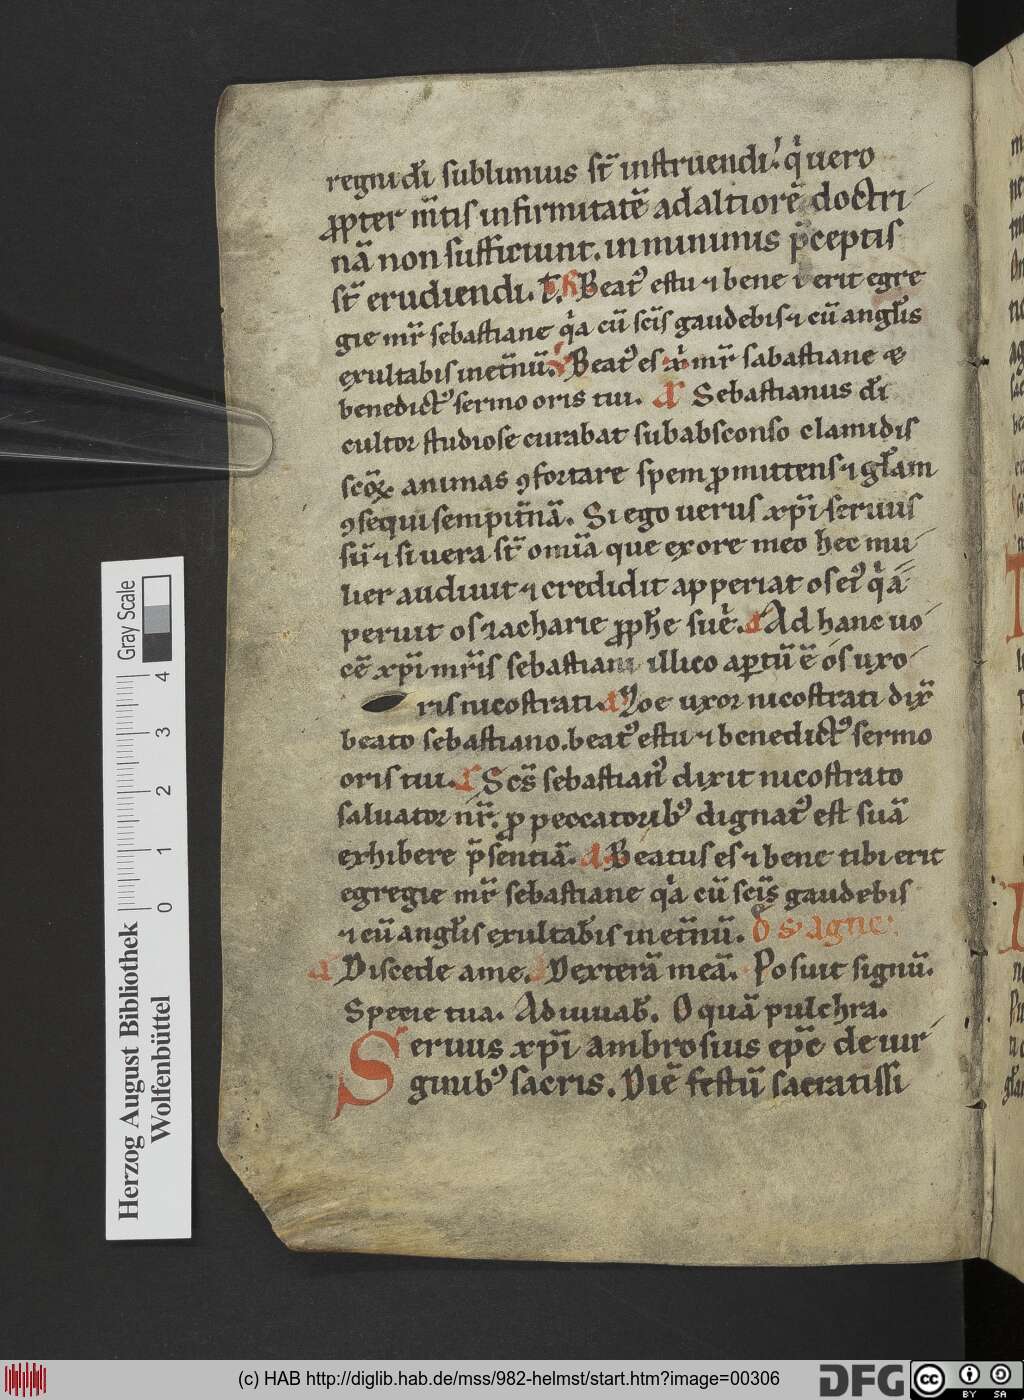 regni di sublimius st̄ instruendi. qͥ uero
ꝓpter m̄tis infirmitatē ad altiorē doctri
nā non sufficiunt. in minimis p̄ceptis
st̄ erudiendi. T. R Beatꝰ es tu ⁊ bene t erit egre
gie mr̄ sebastiane qͥa cū sc̄is gaudebis ⁊ cū angl̄is
exultabis inet̄nū. V Beatꝰ es xp̄i mr̄ sabastiane &
benedictꝰ sermo oris tui. A Sebastianus di
cultor studiose curabat sub absconso clamidis
sc̄oꝝ animas ꝯfortare spem promittens ⁊ gl̄am
ꝯsequi sempit̄nā. Si ego uerus xp̄i seruus
sū ⁊ si uera st̄ omīa que ex ore meo hec mu
lier audiuit ⁊ credidit apperiat os eiꝰ qͥ a
peruit os zacharie ꝓphe̅ sue. A Ad hanc uo
cē xp̄i mr̄is sebastiani illico aꝑtū ē os uxo
ris nicostrati. A Zoe uxor nicostrati dix̄
beato sebastiano. beatꝰ es tu ⁊ benedictꝰ sermo
oris tui. A Scs̄ sebastianꝰ dixit nicostrato
saluator nr̄. pro peccatoribꝰ dignatꝰ est suā
exhibere p̄sentiā. A Beatus es ⁊ bene tibi erit
egregie mr̄ sebastiane qͥa cū sc̄is gaudebis
⁊ cū angl̄is exultab̄is inet̄nū. D s̄ Agne.
A Discede a me. Dexterā meā. Posuit signū.
Specie tua. Adiuuab̄. O quā pulchra.
Seruus xp̄i ambrosius ep̄c de uir
ginibꝰ sacris. Diē festū sacratissi
Herzog August Bibliothek
Wolfenbüttel
Gray Scale
0 1 2 3 4
(c) HAB http://diglib.hab.de/mss/982-helmst/start.htm?image=00306
DFG
cc BY SA